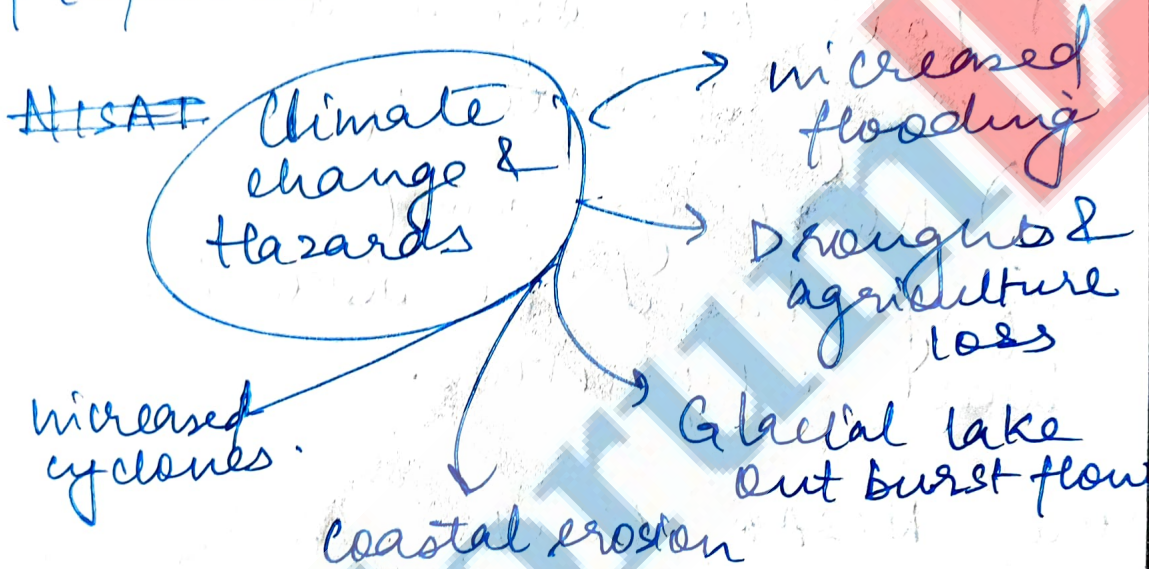 NISAT
Climate
change &
Hazards
increased
flooding
Droughts &
agriculture
loss
Glacial lake
out burst flow
coastal erosion
increased
cyclones.